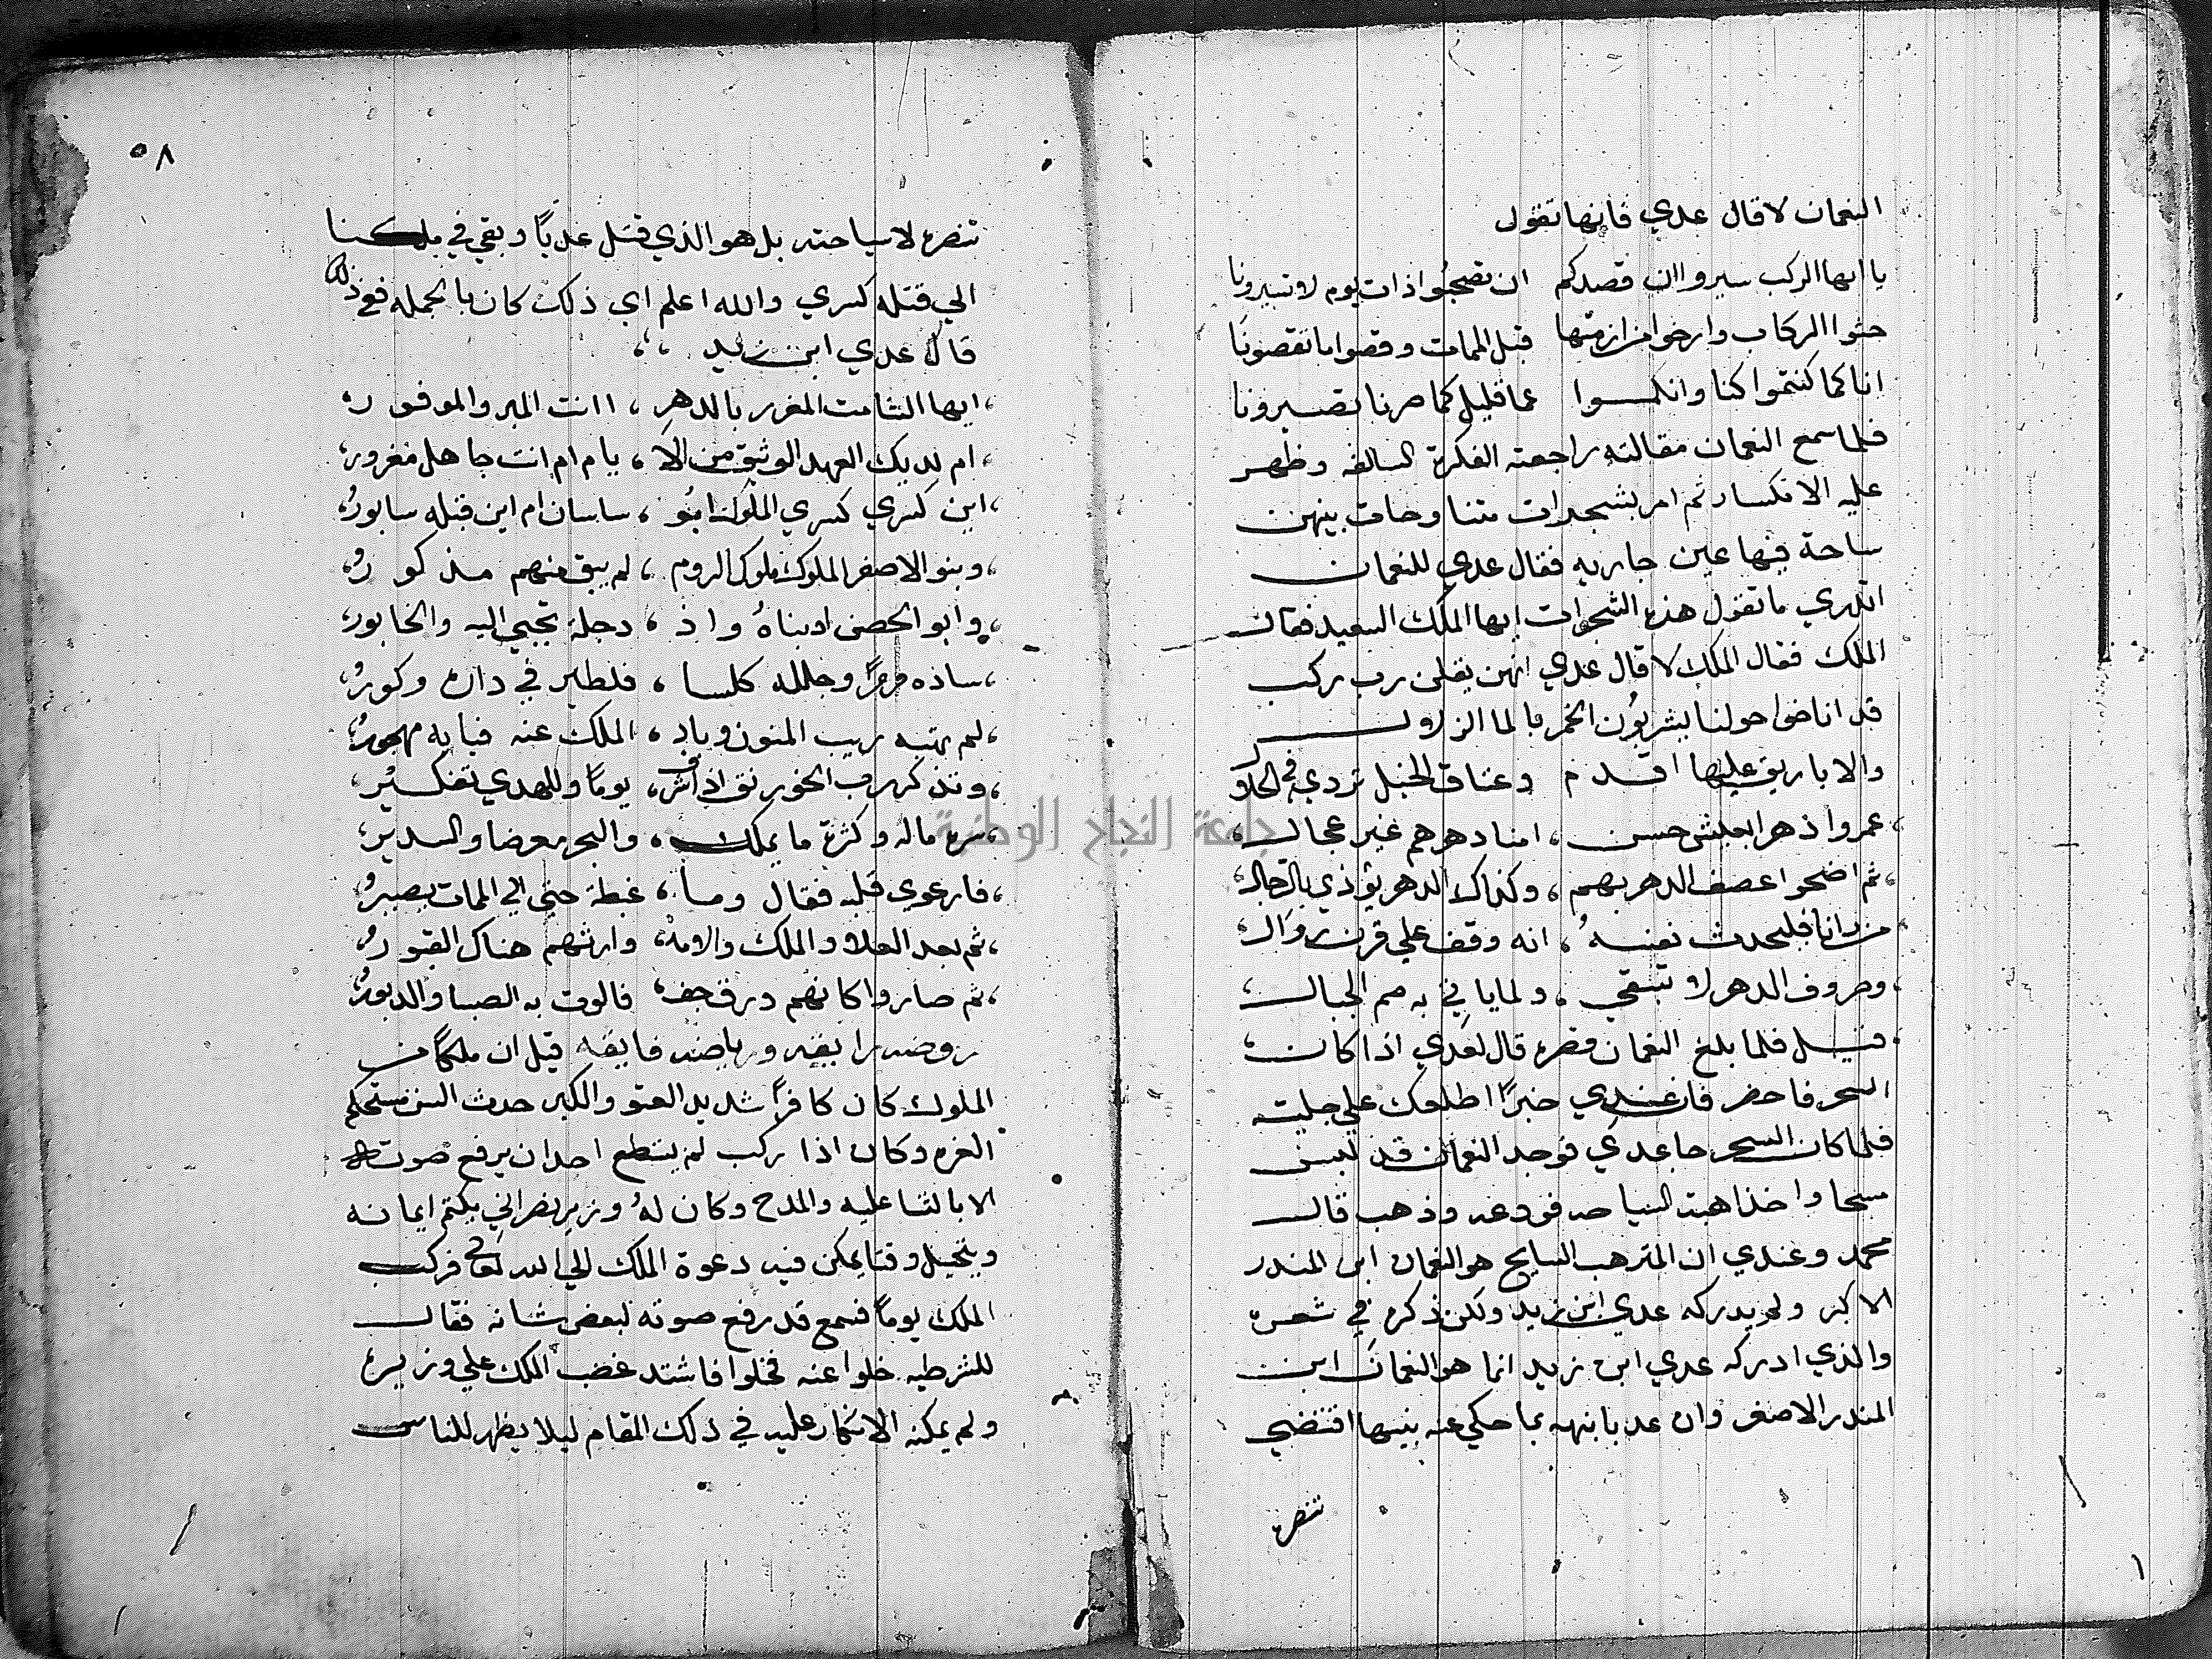 النعمان لا قال عدي فانها تقول
يا ايها الركب سيروا ان قصدكم ان تصبحوا ذات يوم لا تسيرونا
حثوا الركاب وارخوا من ازمتها قبل الممات وقضوا ما تقضونا
انا كما كنتموا كنا وانكموا عما قليل كما صرنا تصيرونا
فلما سمع النعمان مقالته راجعته الفكرة السالفه وظهر
عليه الانكسار ثم امر بشجرات متناوحات بينهن
ساحة فيها عين جاريه فقال عدي للنعمان
اتدري ما تقول هذه الشجرات ايها الملك السعيد فقال
الملك فقال الملك لا قال عدي انهن يقلن رب ركب
قد اناخوا حولنا يشربون الخمر بالما الزلال
والاباريق عليها فدم وعتاق الخيل تردي في الجلال
عمروا دهرا بعيش حسن ، امنا دهرهم غير عجال ،
، ثم اضحوا عصف الدهر بهم ، وكذاك الدهر يؤذي بالرجال
من رانا فليحدث نفسه ، انه وقف علي قرن زوال
، وصروف الدهر لا تبقي ، ولما ياتي به صم الجبال
قيل فلما بلغ النعمان قصره قال لعدي اذا كان
السحر فاحضر فان عندي خبرًا اطلعك علي جليته
فلما كان السحر جا عدي فوجد النعمان قد لبس
مسحا واخذ اهبة السياحه فودعه وذهب قال
محمد وعندي ان المترهب السايح هو النعمان ابن المنذر
الاكبر ولم يدركه عدي ابن زيد ولكن ذكره في شعره
والذي ادركه عدي ابن زيد انما هو النعمان ابن
المنذر الاصغر وان عديا نبهه بما حكي عنه بينهما اقتضي
تنصره
٥٨
تنصره لا سياحته بل هو الذي قتل عديًا وبقي في ملكه
الي قتله كسري والله اعلم اي ذلك كان بالجمله ففي ذلك
قال عدي ابن زيد
، ايها الشامت المغرر بالدهر ، اانت المبر والموفور
، ام لديك العهد الوثيق من الا ، يام ام انت جاهل مغرور
، اين كسري كسري الملوك ابو ، ساسان ام اين قبله سابور
، وبنو الاصفر الملوك ملوك الروم ، لم يبق منهم مذكور
، وابو الحصن اذ بناه واذ ، دجلة تجبي اليه والخابور
، ساده مرمرًا وجلله كلسا ، فللطير في ذراه وكور
، لم يهبه ريب المنون وباد ، الملك عنه فبابه مهجور
، وتذكر رب الخورنق اذ اشرف ، يومًا وللهدي تفكير
، سره ماله وكثرة ما يملك ، والبحر معرضا والسدير
، فارعوي قلبه فقال وما ، غبطة حي الي الممات يصير
، ثم بعد الفلاح والملك والامه ، وارثهم هناك القبور
، ثم صاروا كانهم ورق جف ، فالوت به الصبا والدبور
روضه رايقه ورياضه فايقه قيل ان ملكًا من
الملوك كان كافرًا شديد العتو والكبر حدث السن مستحكم
الغره وكان اذا ركب لم يستطع احد ان يرفع صوته
الا بالثنا عليه والمدح وكان له وزير نصراني يكتم ايمانه
ويتحيل وقتا يمكن فيه دعوة الملك الي الله تعالى فركب
الملك يومًا فسمع قد رفع صوته لبعض شانه فقال
للشرطيه خلوا عنه فخلوا فاشتد غضب الملك علي وزيره
ولم يمكنه الانكار عليه في ذلك المقام ليلا يظهر للناس
جامعة النجاح الوطنية